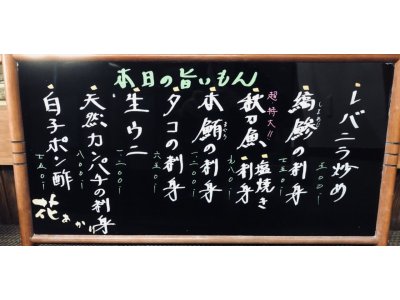 本日の旨いもん
レバニラ炒め
五〇〇一
縞鯵の刺身
しまあじ
七五〇一
超特大!!
秋刀魚
塩焼き
刺身
九八〇一
本鮪の刺身
まぐろ
一二〇〇一
タコの刺身
六五〇一
生ウニ
一二〇〇一
天然カンパチの刺身
八〇〇一
白子ポン酢
七八〇一
花あかり